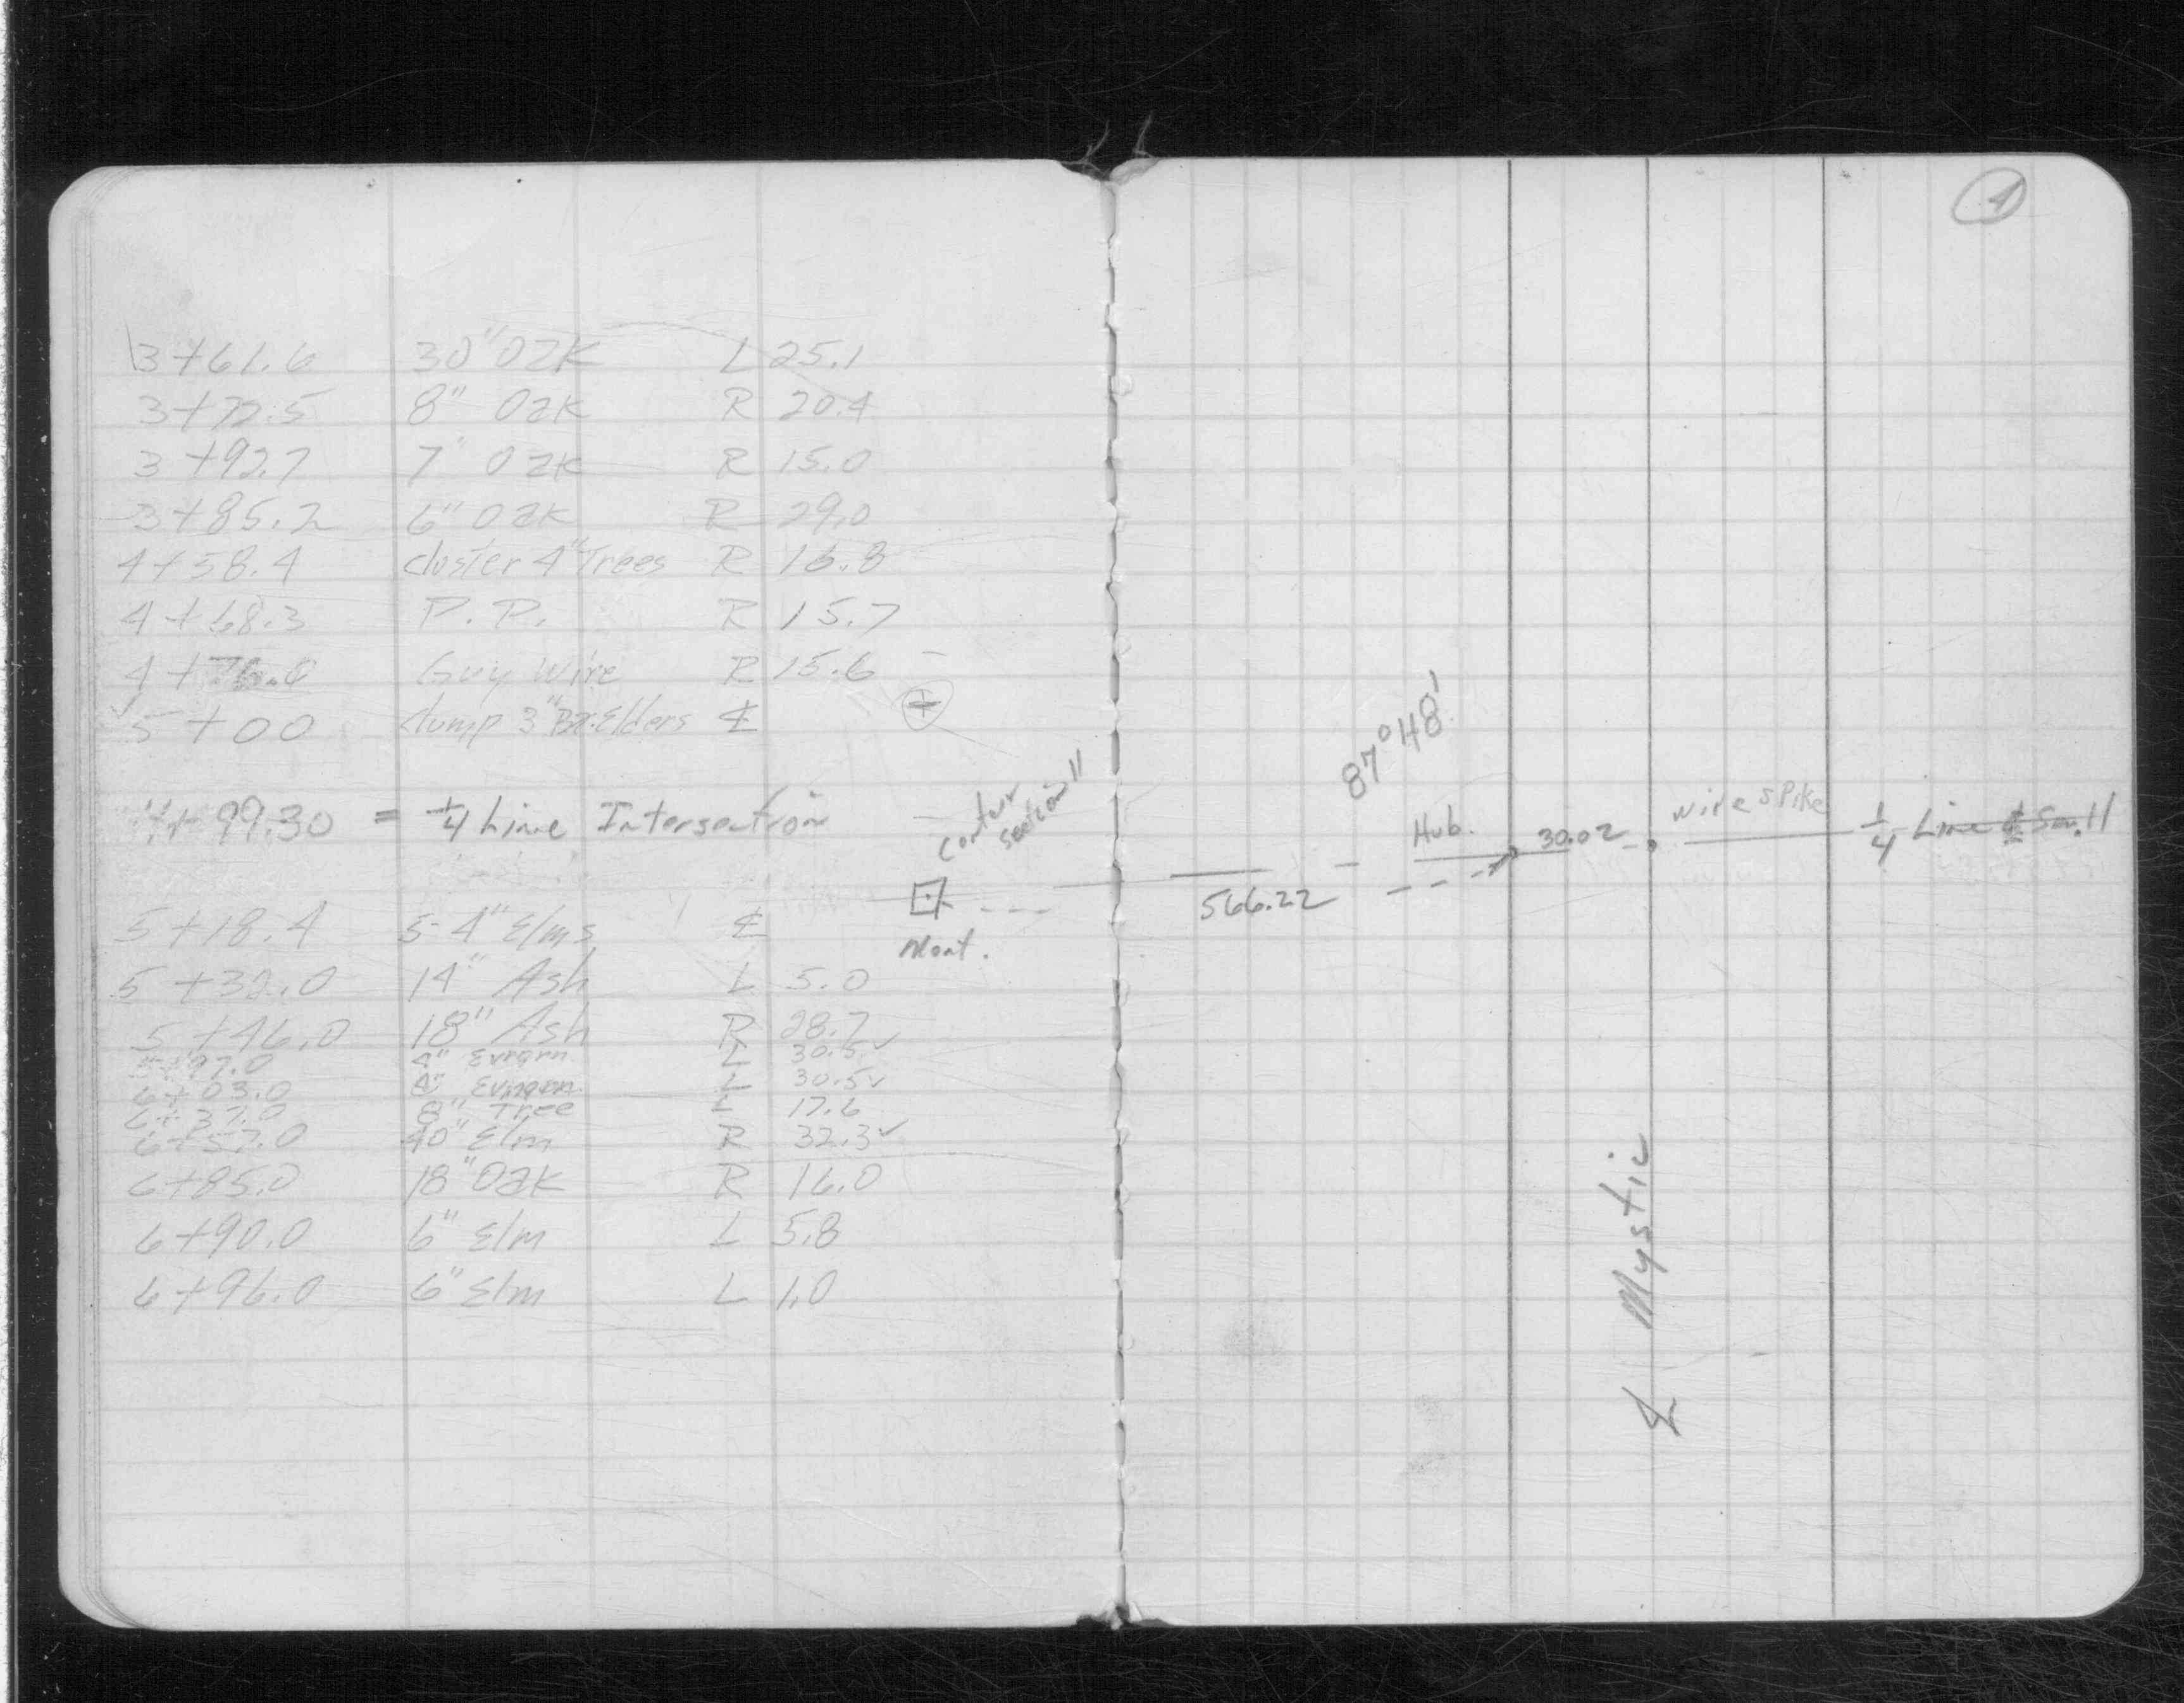 3+61.6 30" Oak L 25.1
3+72.5 8" Oak R 20.4
3+92.7 7" Oak R 15.0
3+85.2 6" Oak R 29.0
4+58.4 cluster 4" Trees R 16.8
4+68.3 P.P. R 15.7
4+76.0 Guy Wire R 15.6
5+00 clump 3" Bx. Elders ℄
4+99.30 = 1/4 Line Intersection
5+18.4 5-4" Elms ℄
5+32.0 14" Ash L 5.0
5+46.0 18" Ash R 28.7 ✓
5+97.0 4" Evrgrn L 30.5 ✓
6+03.0 4" Evrgrn L 30.5 ✓
6+37.0 8" Tree L 17.6
6+57.0 40" Elm R 32.3 ✓
6+85.0 18" Oak R 16.0
6+90.0 6" Elm L 5.8
6+96.0 6" Elm L 1.0
Center
section 11
Mont.
566.22
87°48'
Hub.
30.02
wire spike
1/4 Line Sec. 11
℄ Mystic